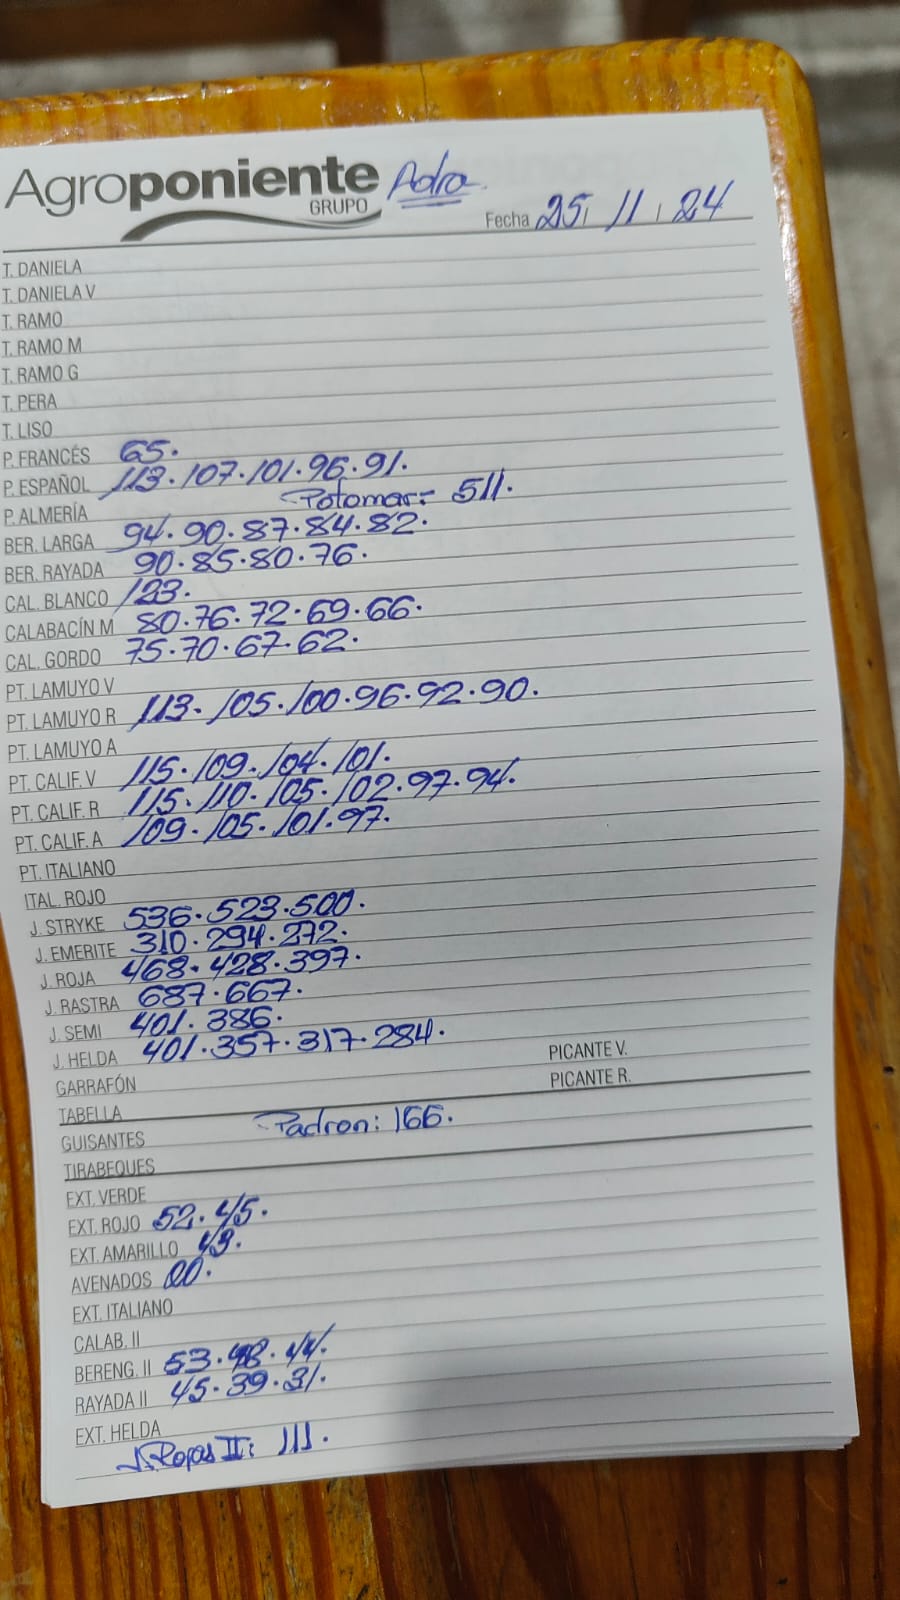 Agroponiente Adra
GRUPO
Fecha 25 / 11 / 24
T. DANIELA
T. DANIELA V
T. RAMO
T. RAMO M
T. RAMO G
T. PERA
T. LISO
P. FRANCÉS 65.
P. ESPAÑOL 113.107.101.96.91.
P. ALMERÍA Potomar: 511.
BER. LARGA 94.90.87.84.82.
BER. RAYADA 90.85.80.76.
CAL. BLANCO 123.
CALABACÍN M 80.76.72.69.66.
CAL. GORDO 75.70.67.62.
PT. LAMUYO V
PT. LAMUYO R 113.105.100.96.92.90.
PT. LAMUYO A
PT. CALIF. V 115.109.104.101.
PT. CALIF. R 115.110.105.102.97.94.
PT. CALIF. A 109.105.101.97.
PT. ITALIANO
ITAL. ROJO
J. STRYKE 536.523.500.
J. EMERITE 310.294.272.
J. ROJA 468.428.397.
J. RASTRA 687.667.
J. SEMI 401.386.
J. HELDA 401.357.317.284.
GARRAFÓN PICANTE V.
TABELLA PICANTE R.
GUISANTES Padron: 166.
TIRABEQUES
EXT. VERDE
EXT. ROJO 52.45.
EXT. AMARILLO 43.
AVENADOS
EXT. ITALIANO
CALAB. II
BERENG. II 53.48.44.
RAYADA II 45.39.31.
EXT. HELDA
J. Rojas II: 111.